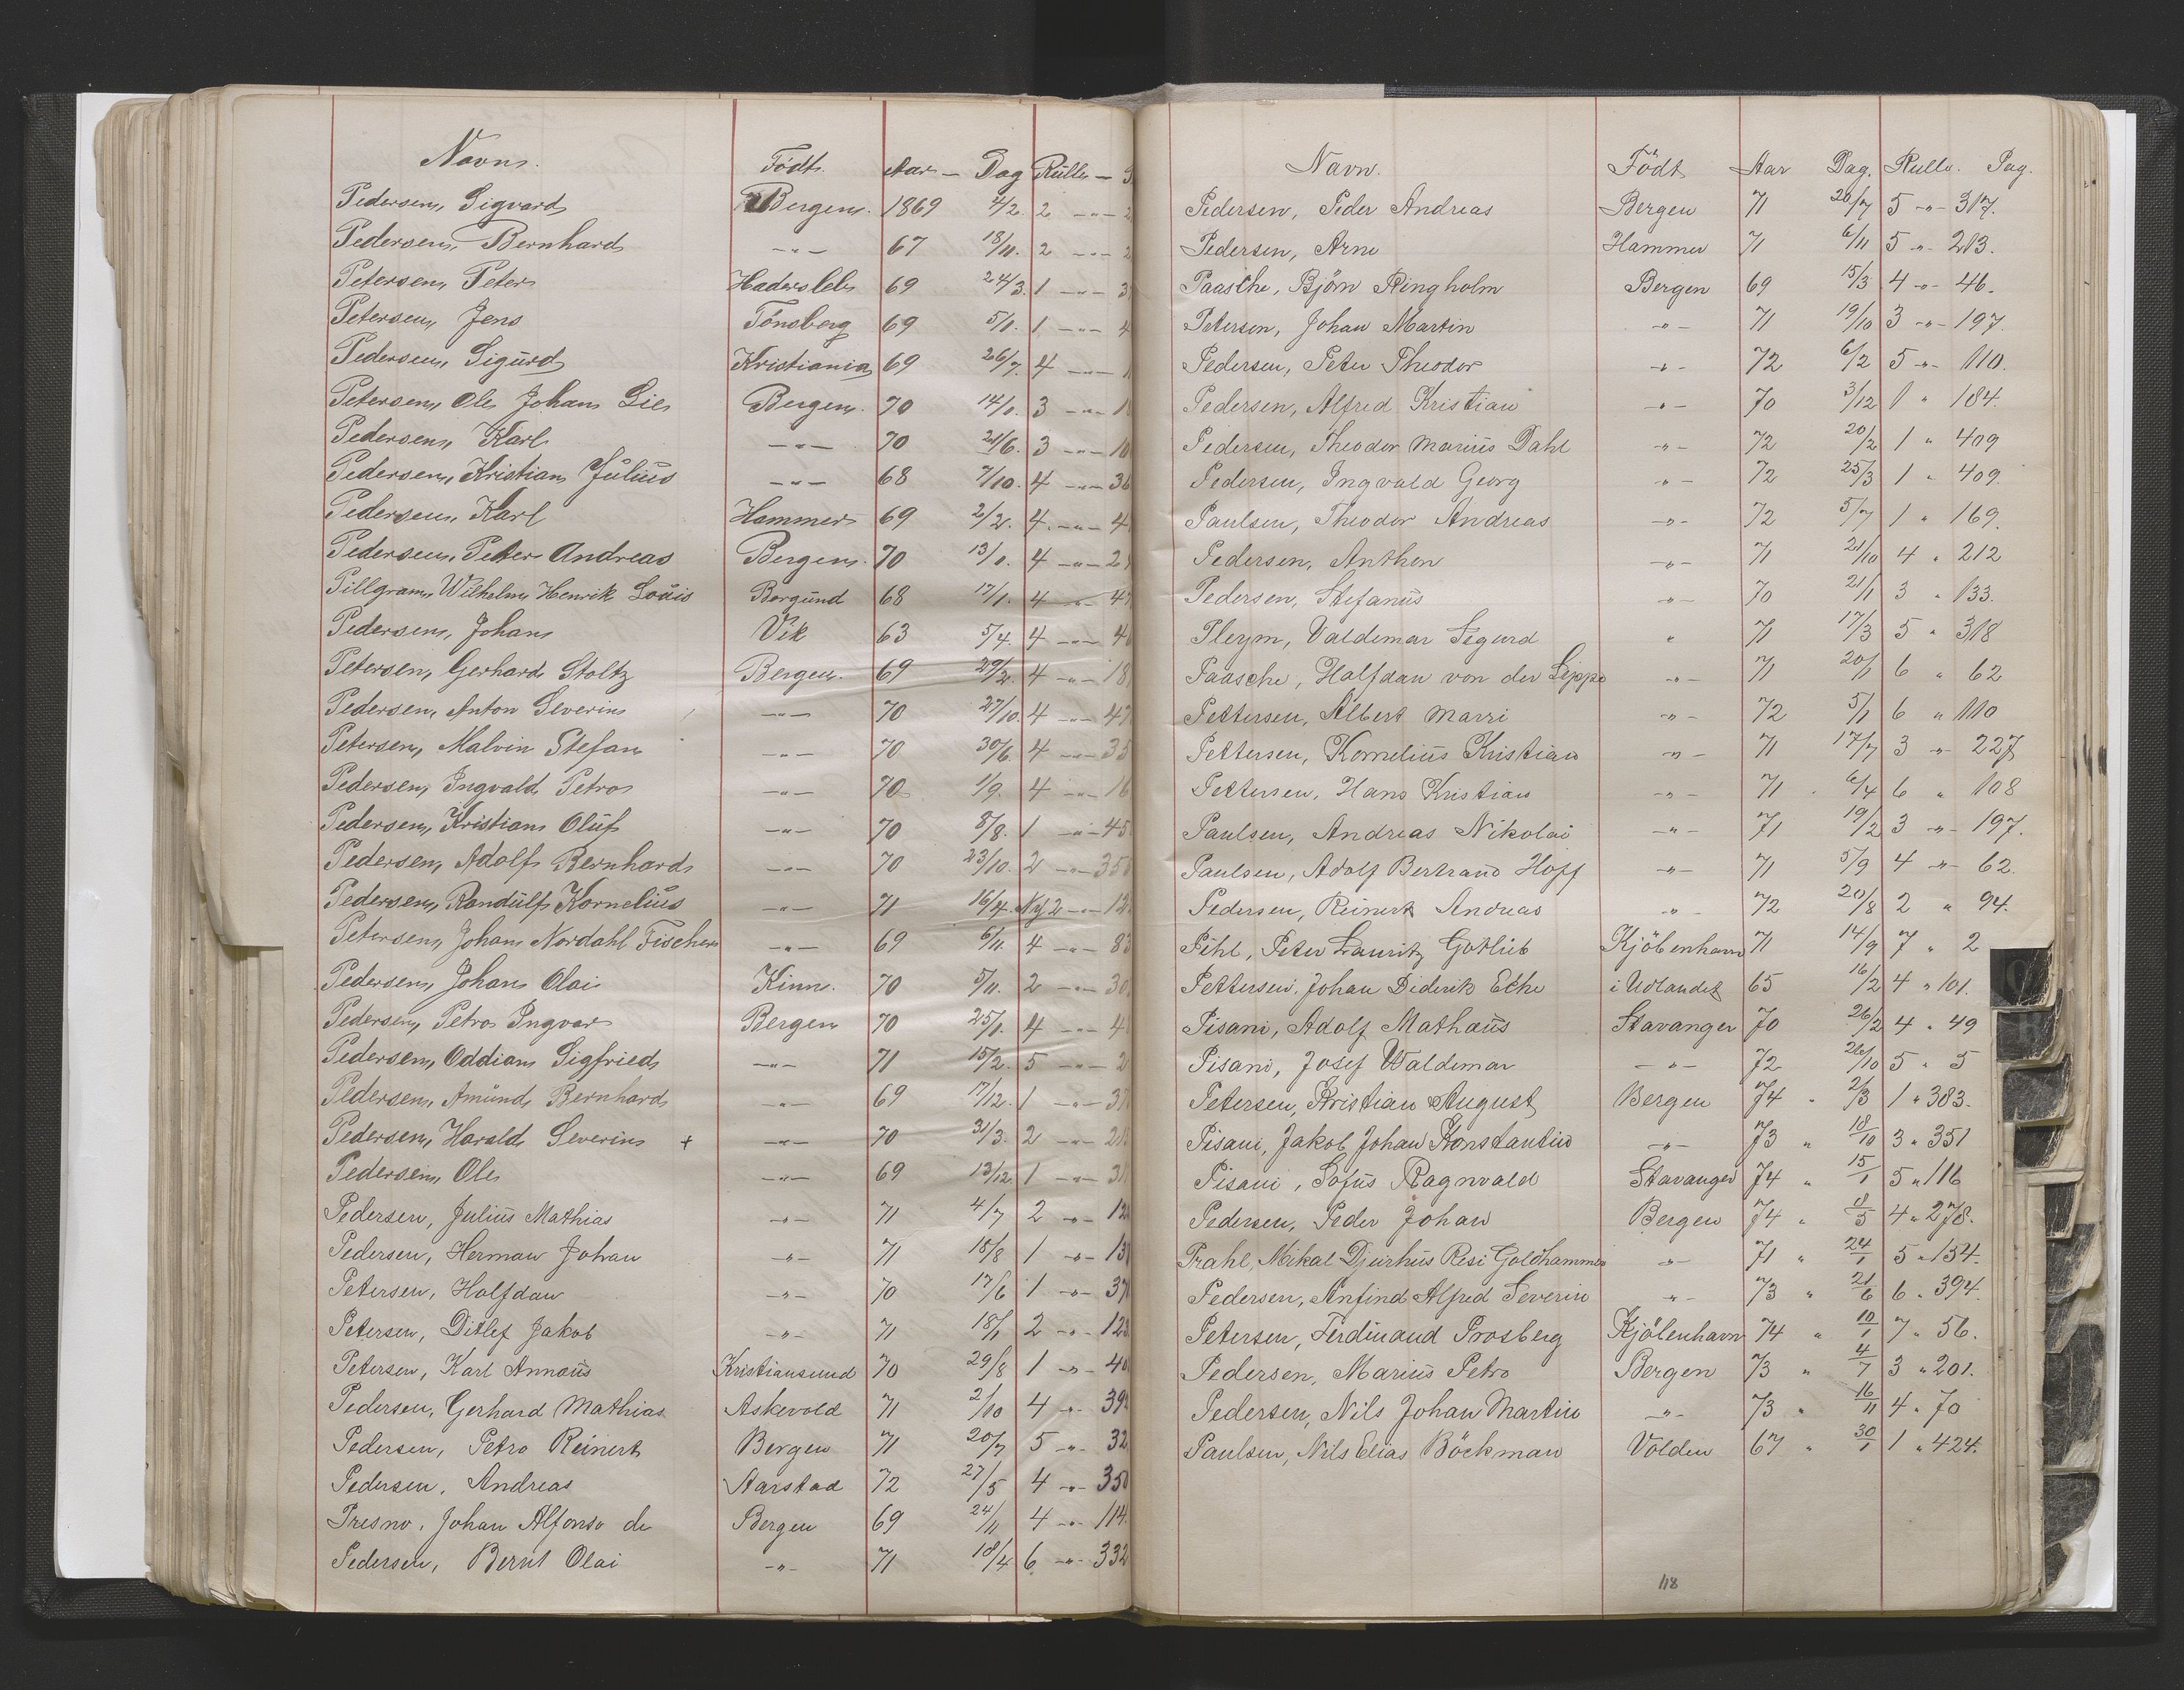 Navn. Födt. Aar – Dag Rulle –
Pedersen, Sigvard Bergen. 1869 4/2. 2 -"-
Pedersen, Bernhard -"- 67 18/11. 2 -"-
Petersen, Peter Haderslev 69 24/3. 1 -"-
Petersen, Jens Tönsberg 69 5/1. 1 -"-
Pedersen, Sigurd Kristiania 69 26/7. 4 -"-
Petersen, Ole Johan Lie Bergen. 70 14/1. 3 -"-
Pedersen, Karl -"- 70 21/6. 3 -"-
Pedersen, Kristian Julius -"- 68 7/10. 4 -"- 36
Pedersen, Karl Hammer 69 2/2. 4. -"- 4
Pedersen, Peter Andreas Bergen. 70 13/1. 4 -"- 2
Pillgram, Wilhelm Henrik Louis Borgund 68 17/1. 4 -"- 47
Pedersen, Johan Vik 63 5/4. 4 -"- 4
Petersen, Gerhard Stoltz Bergen. 69 29/2. 4 -"- 18
Pedersen, Anton Severin -"- 70 27/10. 4 -"- 47
Petersen, Malvin Stefan -"- 70 30/6. 4 -"- 35
Pedersen, Ingvald Petro -"- 70 1/9. 4 -"- 16
Pedersen, Kristian Oluf -"- 70 8/8. 1 -"- 45
Pedersen, Adolf Bernhard -"- 70 23/10. 2 -"- 35
Pedersen, Randulf Kornelius -"- 71 16/4. Ny 2 -"- 12
Petersen, Johan Nordahl Fischer -"- 69 6/11. 4 -"- 83
Pedersen, Johan Olai Kinn. 70 5/11. 2 -"- 30
Pedersen, Petro Ingvar Bergen 70 25/1. 4 -"- 4
Pedersen, Oddian Sigfried -"- 71 15/2. 5 -"- 2
Pedersen, Amund Bernhard -"- 69 17/12. 1 -"- 37
Pedersen, Harald Severin + -"- 70 31/3. 2 -"- 21
Pedersen, Ole -"- 69 13/12 1 -"- 31
Pedersen, Julius Mathias -"- 71 4/7 2 -"- 12
Pedersen, Herman Johan -"- 71 15/8 1 -"- 13
Petersen, Halfdan -"- 70 17/6 1 -"- 37
Petersen, Ditlef Jakob -"- 71 18/1 2 -"- 123
Petersen, Karl Annæus Kristiansund 70 29/8 1 -"- 40
Pedersen, Gerhard Mathias Askevold 71 2/10 4 -"- 39
Pedersen, Petro Reinert Bergen 71 20/7 5 -"- 32
Pedersen, Andreas Aarstad 72 27/5 4 -"- 350
Presno, Johan Alfonso de Bergen 69 24/11 4 -"- 114.
Pedersen, Bernt Olai -"- 71 18/4 6 -"- 332
Navn. Födt Aar Dag. Rulle. Pag.
Pedersen, Peder Andreas Bergen 71 20/7 5 -"- 317.
Pedersen, Arne Hammer 71 6/11 5 -"- 213.
Paasche, Björn Ringholm Bergen 69 15/3 4 -"- 46.
Petersen, Johan Martin -"- 71 19/10 3 -"- 197.
Pedersen, Peter Theodor -"- 72 6/2 5 -"- 110.
Pedersen, Alfred Kristian -"- 70 3/12 1 " 184.
Pedersen, Theodor Marius Dahl -"- 72 20/2 1 " 409
Pedersen, Ingvald Georg -"- 72 25/3 1 " 409
Paulsen, Theodor Andreas -"- 72 5/7 1 " 169.
Pedersen, Anthon -"- 71 21/10 4 " 212
Pedersen, Stefanus -"- 70 21/1 3 " 133.
Pleym, Valdemar Segurd " 71 17/3 5 " 318
Paasche, Halfdan von der Lippe -"- 71 20/1 6 " 62
Pettersen, Albert Marri -"- 72 5/1 6 " 110
Pettersen, Kornelius Kristian -"- 71 17/7 3 -"- 227
Pettersen, Hans Kristian -"- 71 6/4 6 " 108
Paulsen, Andreas Nikolai -"- 71 19/2 3 -"- 197.
Paulsen, Adolf Bertrand Hoff -"- 71 5/9 4 -"- 62.
Pedersen, Reinert Andreas -"- 72 20/8 2 " 94.
Pihl, Peter Lauritz Gotlieb Kjöbenhavn 71 14/9 7 " 2
Pettersen, Johan Diderik Ethe i Udlandet 65 16/2 4 " 101.
Pisani, Adolf Mathæus Stavanger 70 26/2 4 " 49
Pisani, Josef Waldemar -"- 72 26/10 5 " 5
Petersen, Kristian August Bergen 74 " 2/3 1 " 383.
Pisani, Jakob Johan Konstantin -"- 73 " 18/10 3 " 351
Pisani, Sofus Ragnvald Stavanger 74 " 15/1 5 " 116
Pedersen, Peder Johan Bergen 74 " 8/5 4 " 278.
Prahl, Mikal Djurhus Resi Goldhammer -"- 71 " 24/1 5 " 154.
Pedersen, Anfind Alfred Severin -"- 73 " 21/6 6 " 394.
Petersen, Ferdinand Prosberg Kjöbenhavn 74 " 10/1 7 " 56.
Pedersen, Marius Petro Bergen 73 " 4/7 3 " 201.
Pedersen, Nils Johan Martin -"- 73 " 16/11 4 " 70
Paulsen, Nils Elias Böckman Volden 67 " 30/1 1 " 424.
118